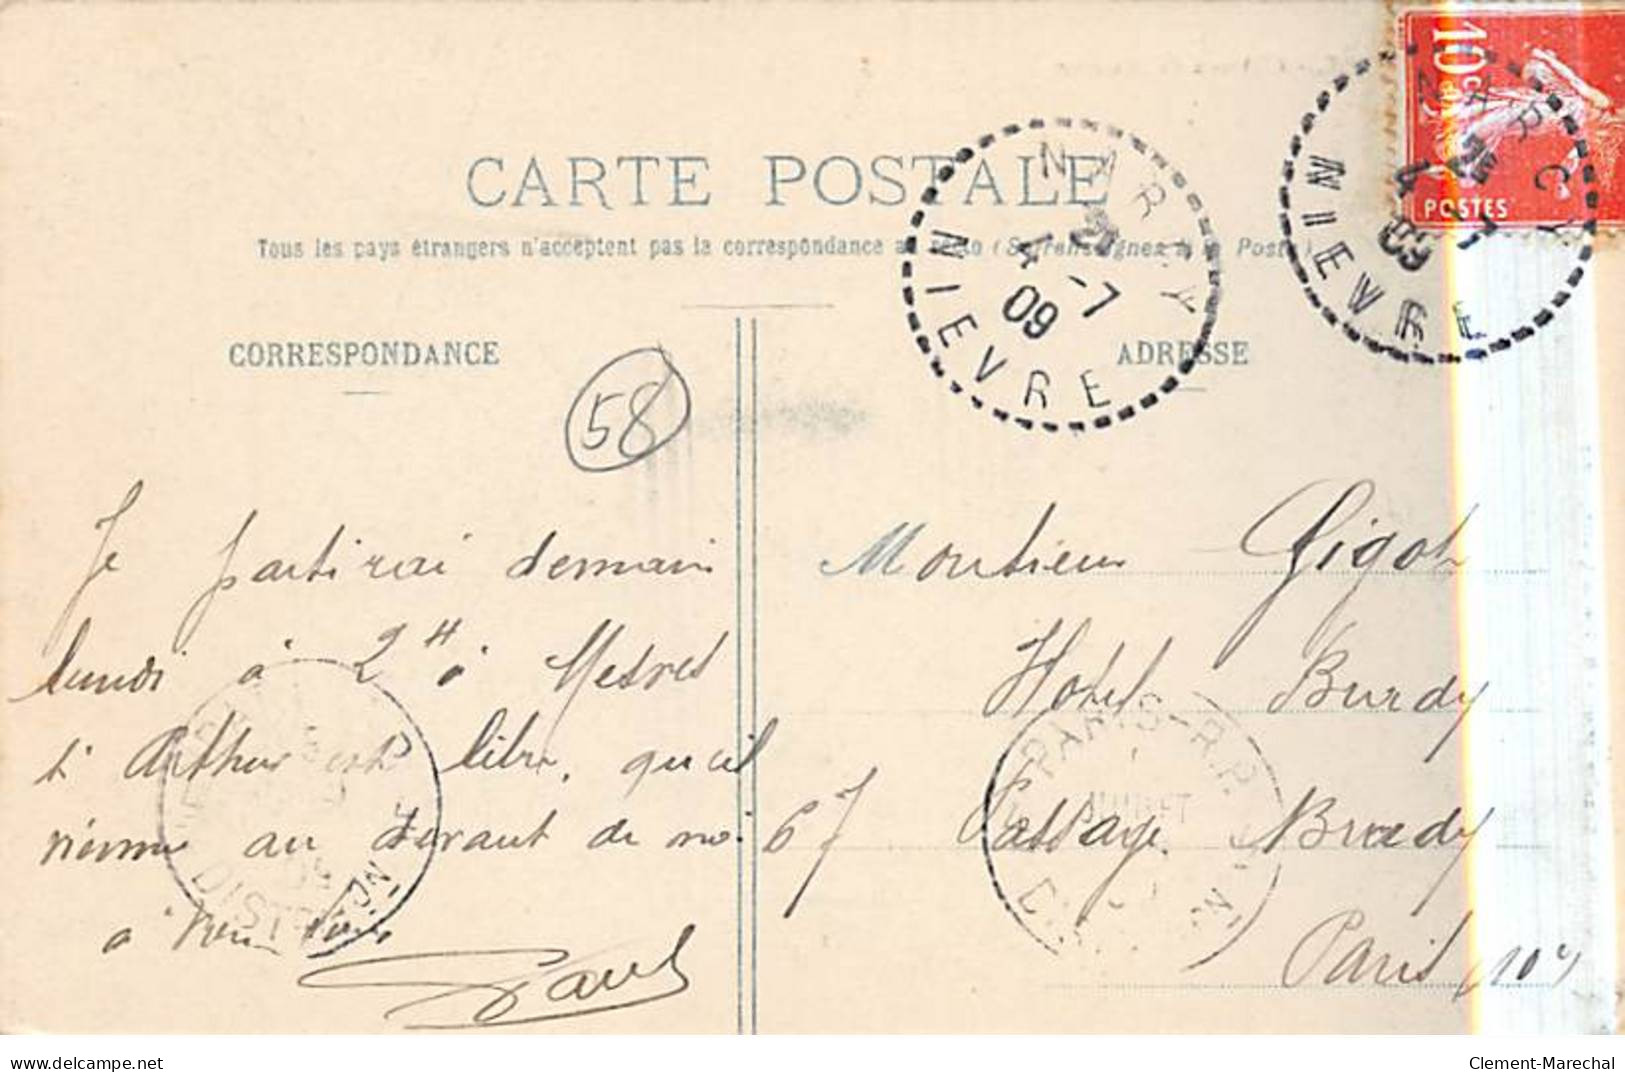 10c
POSTES
NARCY
25
4 -7
09
NIEVRE
NARCY
4 -7
09
NIEVRE
CARTE POSTALE
Tous les pays étrangers n'acceptent pas la correspondance au recto (Se renseigner à la Poste)
CORRESPONDANCE
ADRESSE
58
Je partirai demain
lundi à 2H à Mesves
si Arthur est libre, qu'il
vienne au devant de moi
à
Paul
Monsieur Gigot
Hotel Burdy
67 Passage Brady
Paris (10e)
PARIS R.P.
JUILLET
DISTRIBUTION
delcampe.net
Clement-Marechal